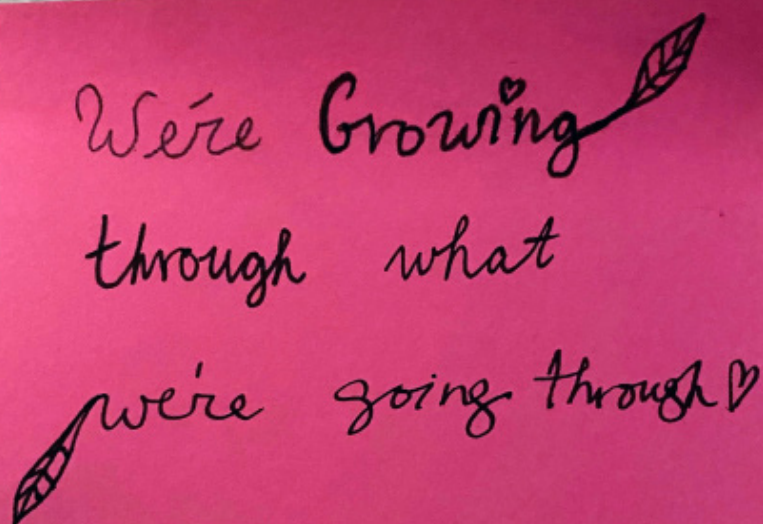 We're Growing
through what
we're going through♡